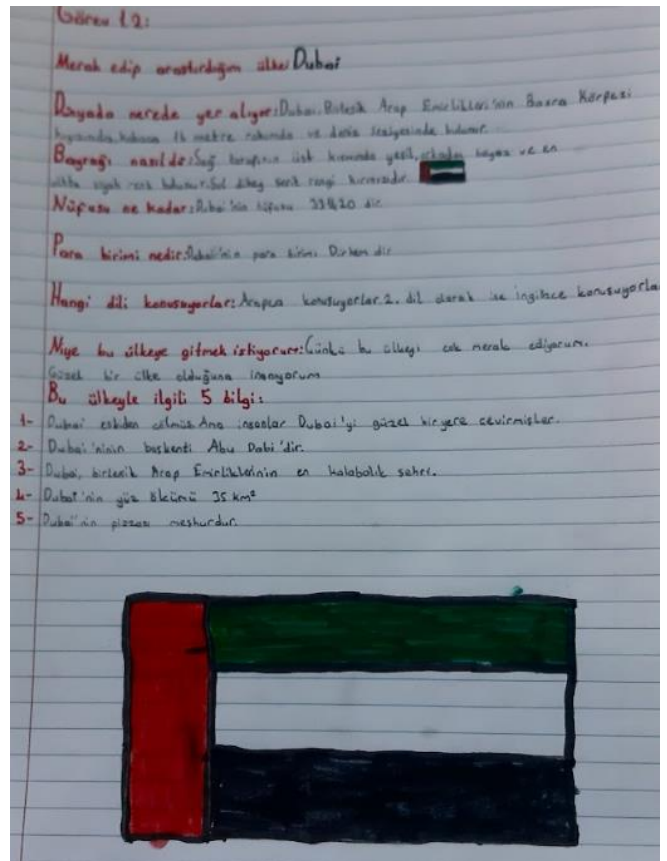 Görev 1.2:
Merak edip araştırdığım ülke: Dubai
Dünyada nerede yer alıyor: Dubai, Birleşik Arap Emirlikleri'nin Basra Körfezi
kıyısında, kabaca 16 metre rakımda ve deniz seviyesinde bulunur.
Bayrağı nasıldır: Sağ tarafının üst kısmında yeşil, ortadan beyaz ve en
altta siyah renk bulunur. Sol dikey şerit rengi kırmızıdır.
Nüfusu ne kadar: Dubai'nin nüfusu dir
Para birimi nedir: Dubai'nin para birimi Dirhem dir
Hangi dili konuşuyorlar: Arapça konuşuyorlar. 2. dil olarak ise ingilizce konuşuyorlar
Niye bu ülkeye gitmek istiyorum: Çünkü bu ülkeyi çok merak ediyorum.
Güzel bir ülke olduğuna inanıyorum
Bu ülkeyle ilgili 5 bilgi:
1- Dubai eskiden çölmüş Ama insanlar Dubai'yi güzel bir yere çevirmişler.
2- Dubai'ninin başkenti Abu Dabi'dir.
3- Dubai, birleşik Arap Emirliklerinin en kalabalık şehri.
4- Dubai'nin yüz ölçümü 35 km²
5- Dubai'nin pizzası meşhurdur.